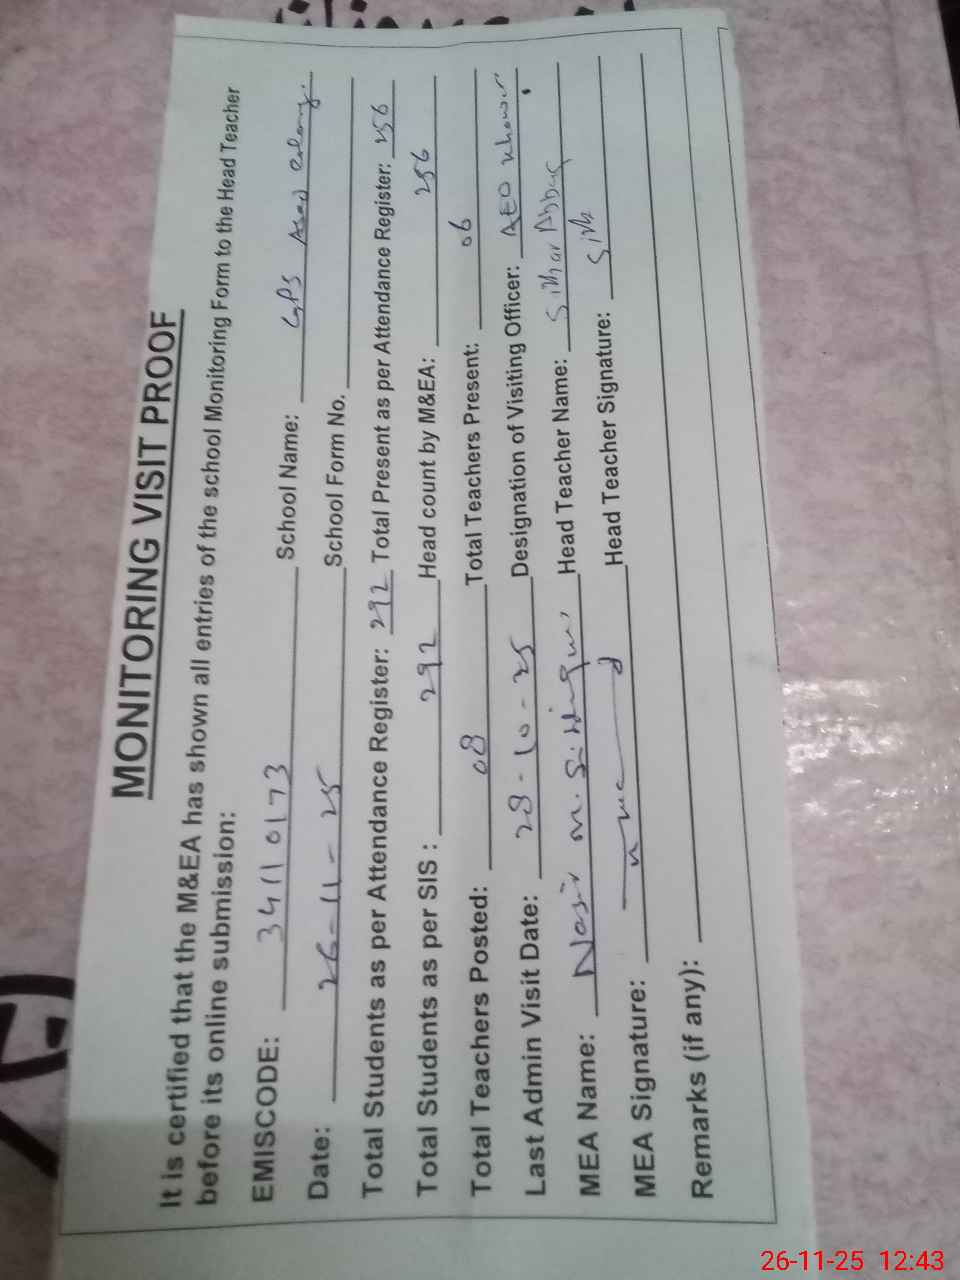 MONITORING VISIT PROOF
It is certified that the M&EA has shown all entries of the school Monitoring Form to the Head Teacher
before its online submission:
EMISCODE: 34110173 School Name: GPS Asad Colony.
Date: 26-11-25 School Form No.
Total Students as per Attendance Register: 292 Total Present as per Attendance Register: 256
Total Students as per SIS : 292 Head count by M&EA: 256
Total Teachers Posted: 08 Total Teachers Present: 06
Last Admin Visit Date: 28-10-25 Designation of Visiting Officer: AEO
MEA Name: Nasir M. Head Teacher Name: Abbas
MEA Signature: Head Teacher Signature:
Remarks (if any):
26-11-25 12:43